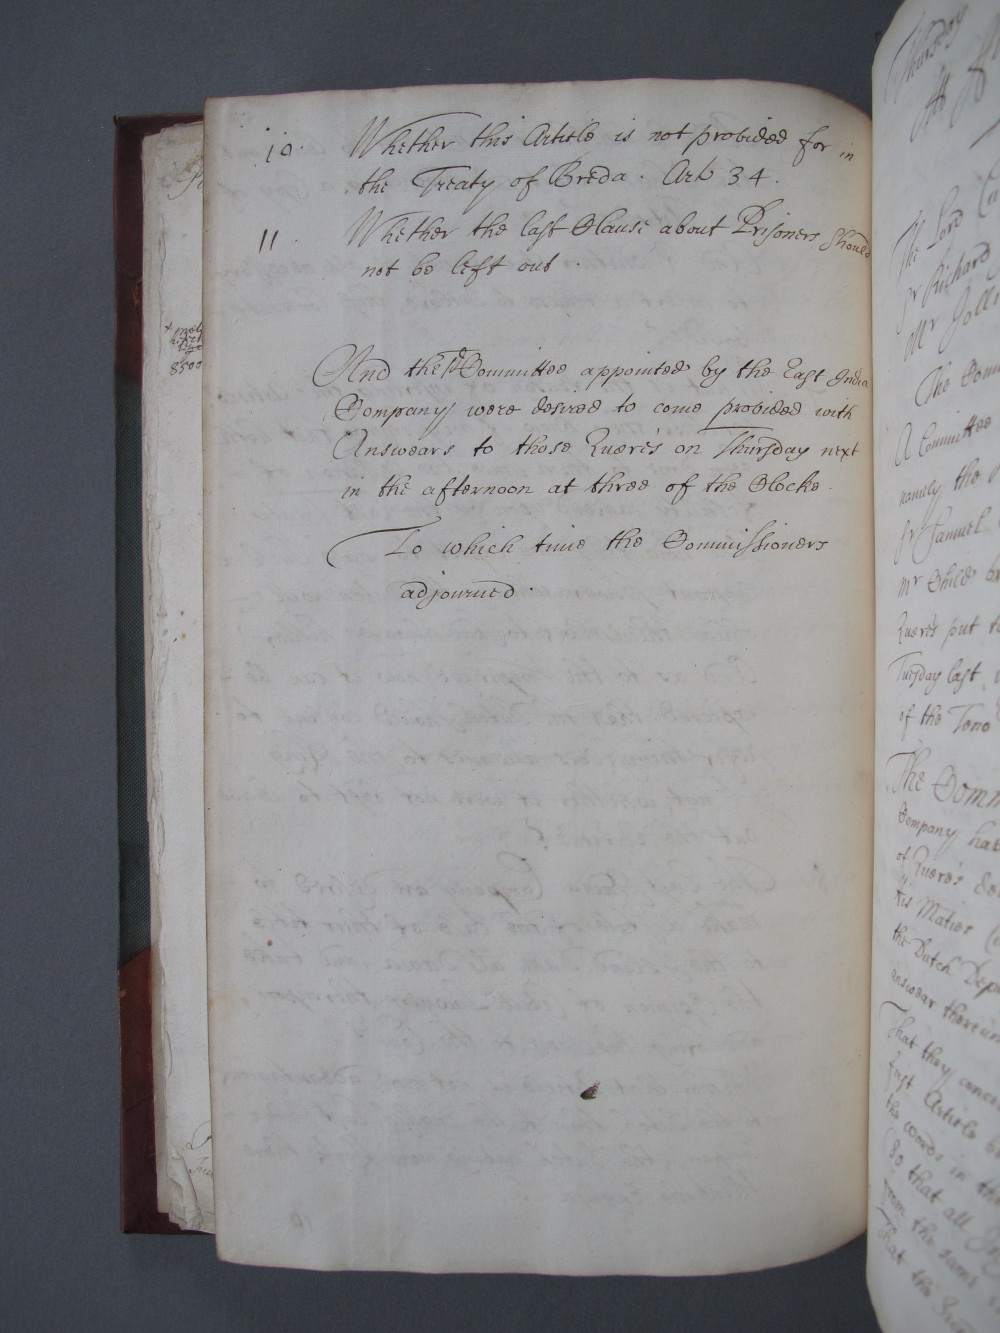 10. Whether this Article is not provided for in
the Treaty of Breda. Art 34.
11. Whether the last Clause about Prisoners should
not be left out.
And the sd Committee appointed by the East India
Company were desired to come provided with
Answears to those Quere's on Thursday next
in the afternoon at three of the Clocke.
To which time the Commissioners
adjourned.
8500
Thursday
At
The Lord
Sr Richard
Mr Jolli
The Comm
A Committee
namely the
Sr Samuel
Mr Child
Quere's put
Tuesday last
of the
The Comm
Company
of Quere's
his Maties
the Dutch Dep
answear thereun
That they conce
first Article
the words in th
So that all
from the same
That the